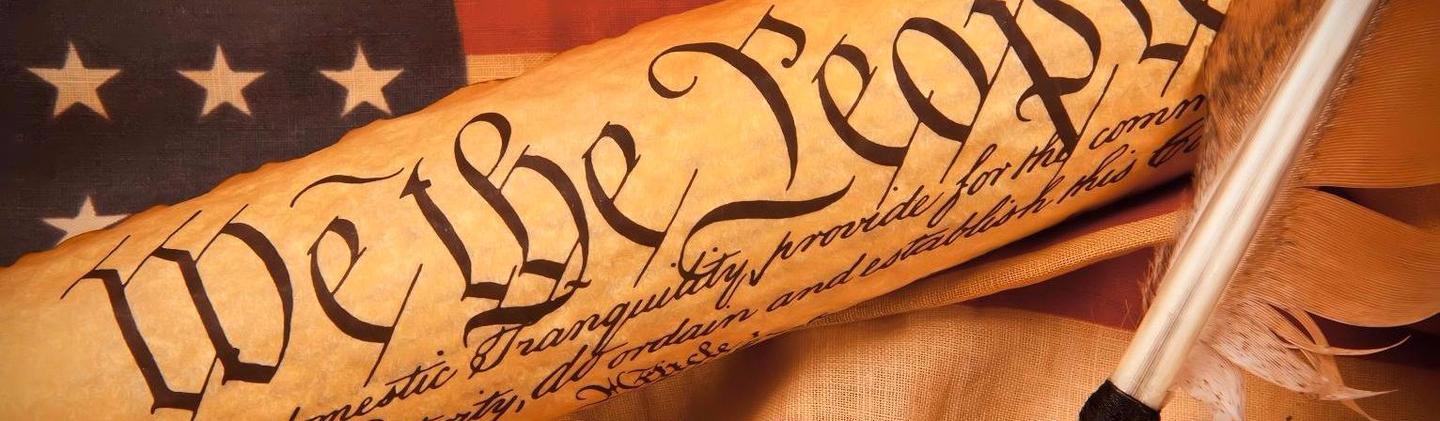 We the People
omestic Tranquility, provide for the comm
terity, do ordain and establish this Co
Article